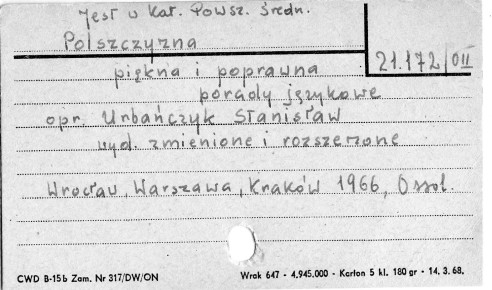 Jest w Kat. Powsz. Średn.
Polszczyzna
21.172 OII
piękna i poprawna
porady językowe
opr. Urbańczyk Stanisław
wyd. zmienione i rozszerzone
Wrocław, Warszawa, Kraków 1966, Ossol.
CWD B-15b Zam. Nr 317/DW/ON
Wrak 647 - 4.945.000 - Karton 5 kl. 180 gr - 14. 3. 68.